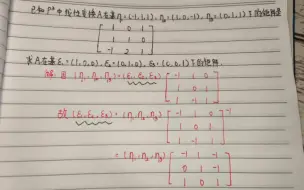 已知 P³中线性变换A在基η₁=(-1,1,1), η₂=(1,0,-1), η₃=(0,1,1)下的矩阵是
[ 1 0 1
1 1 0
-1 2 1 ]
求A在基ε₁=(1,0,0), ε₂=(0,1,0), ε₃=(0,0,1)下的矩阵
解: 因(η₁,η₂,η₃)=(ε₁,ε₂,ε₃) [ -1 1 0
1 0 1
1 -1 1 ]
故(ε₁,ε₂,ε₃)=(η₁,η₂,η₃) [ -1 1 0
1 0 1
1 -1 1 ]⁻¹
=(η₁,η₂,η₃) [ -1 1 -1
0 1 -1
1 0 1 ]